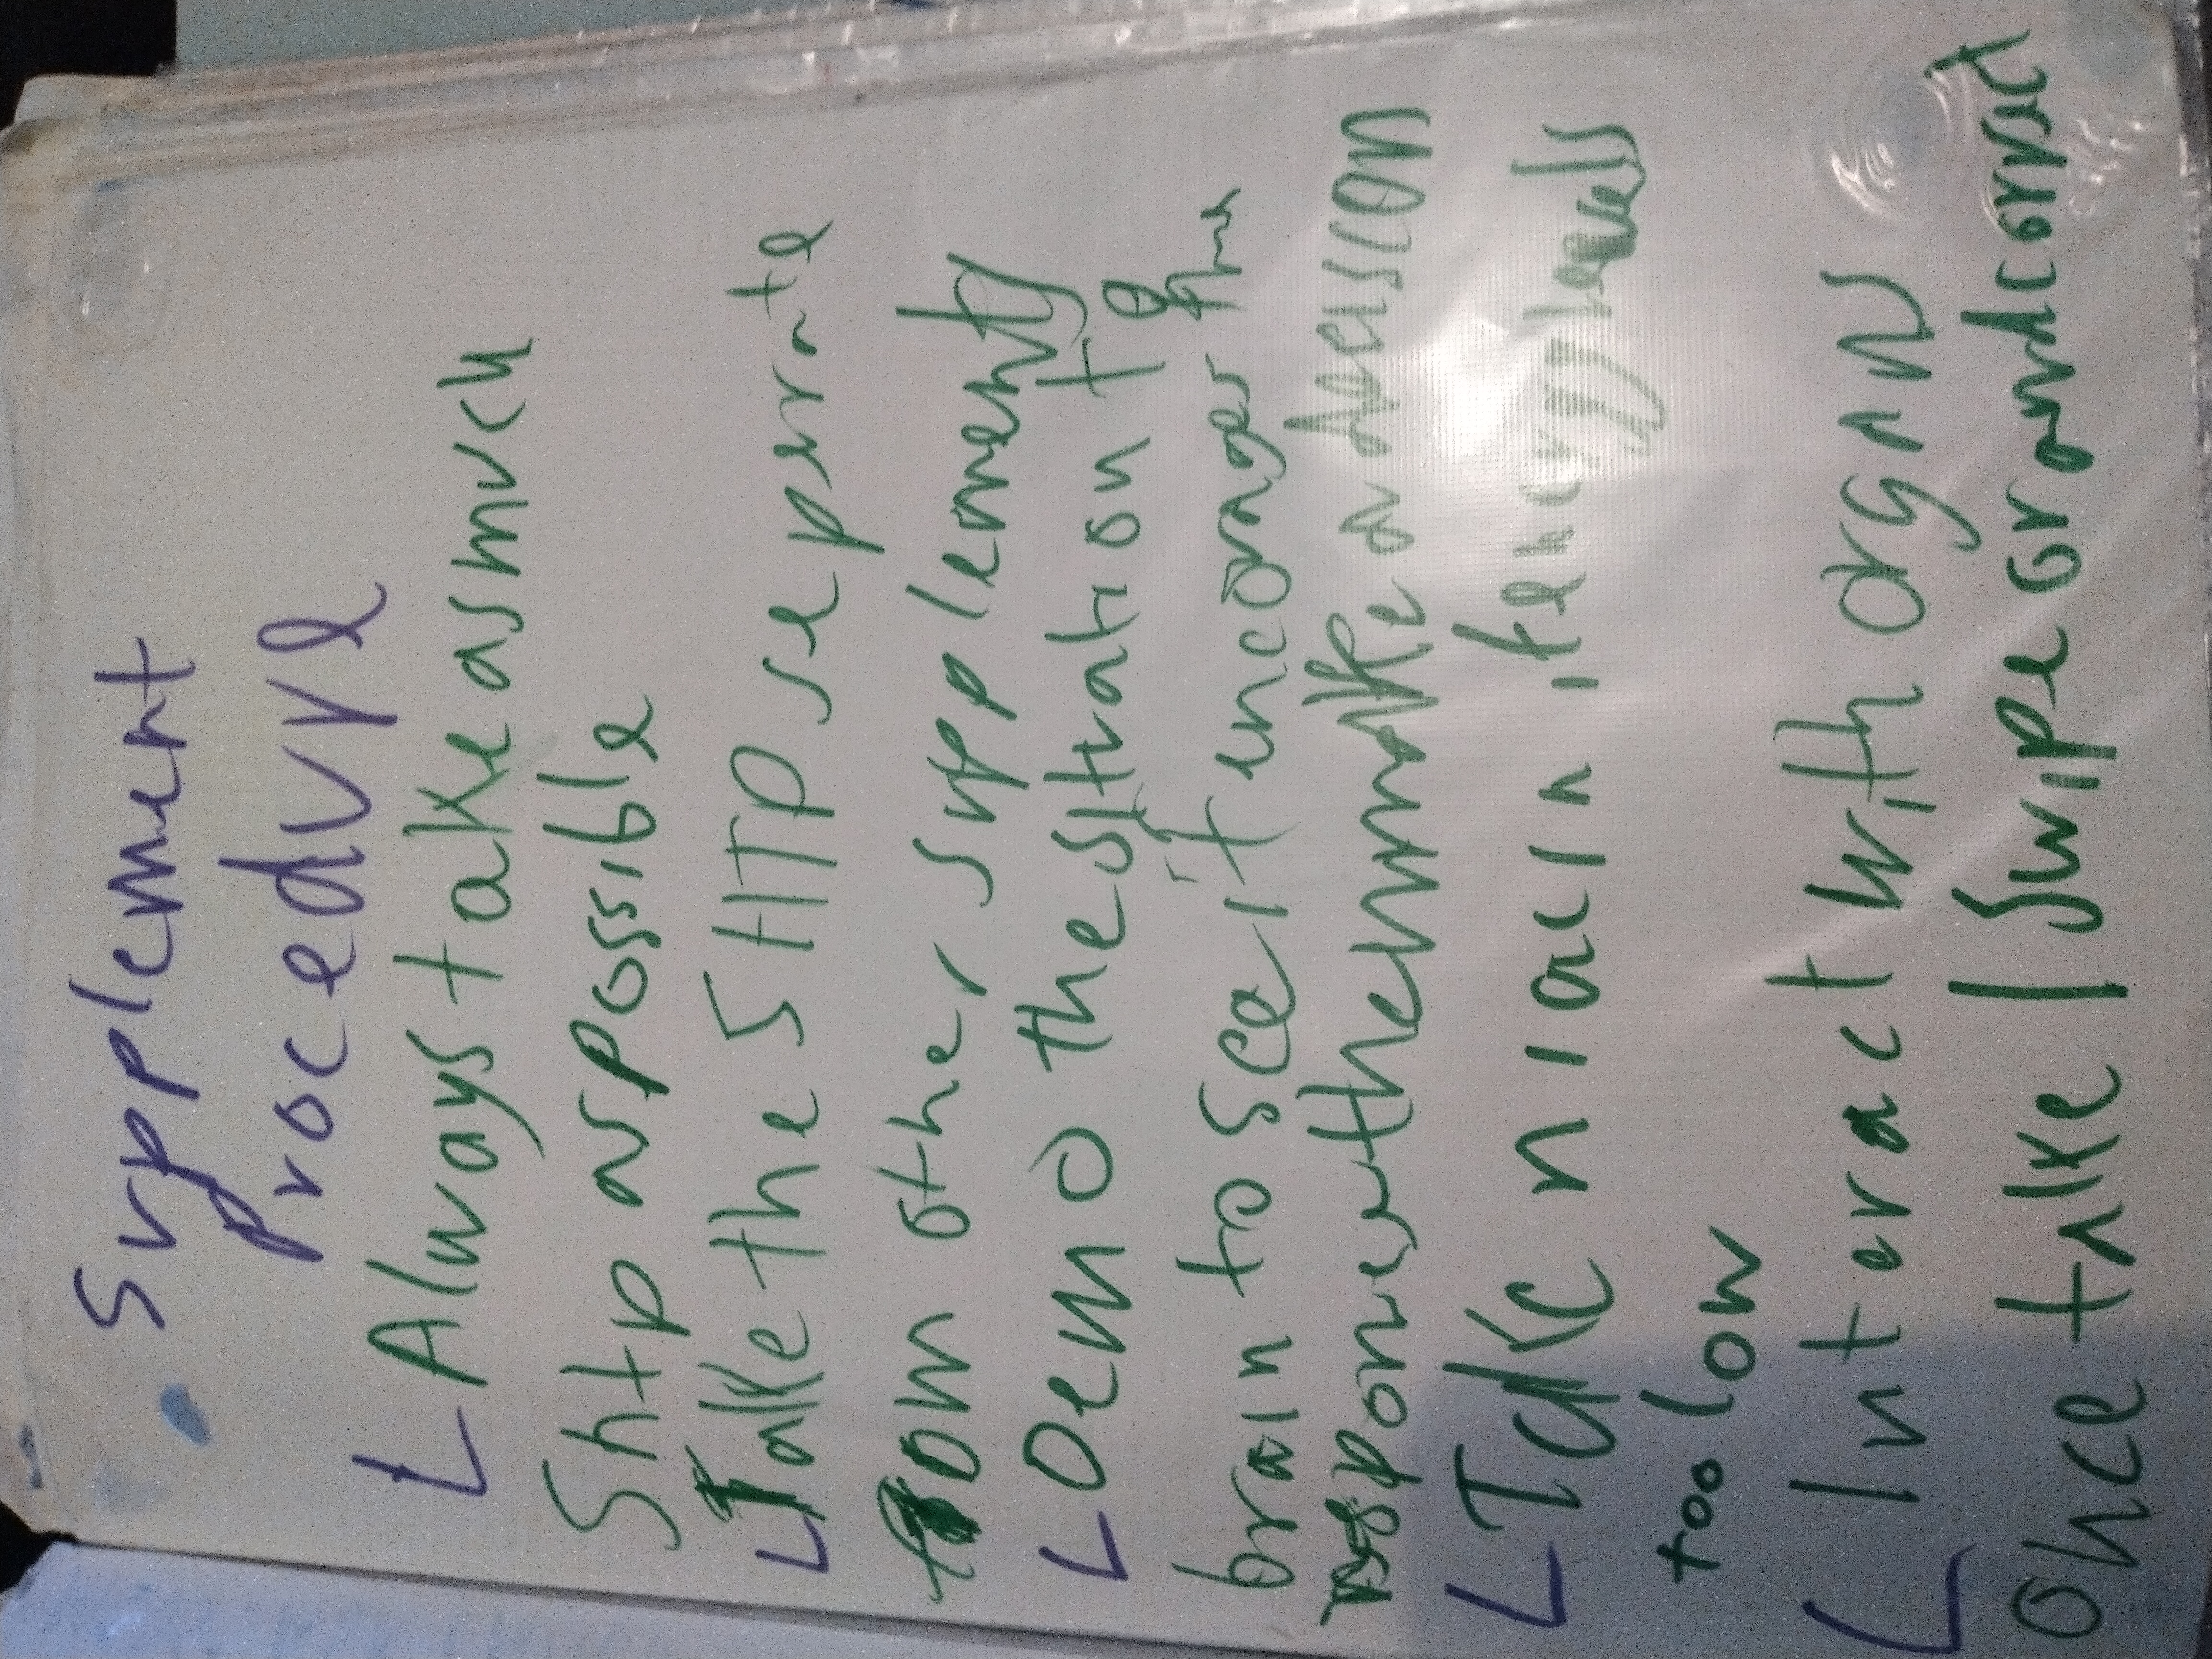 Supplement
procedure
Always take as much
5htp as possible
Take the 5HTP seprate
from other supplements
Demo the situation to
brain to see if increases the
response then make a decission
Take niacin if energy levels
too low
Interact with organs
once take / swipe or and connect